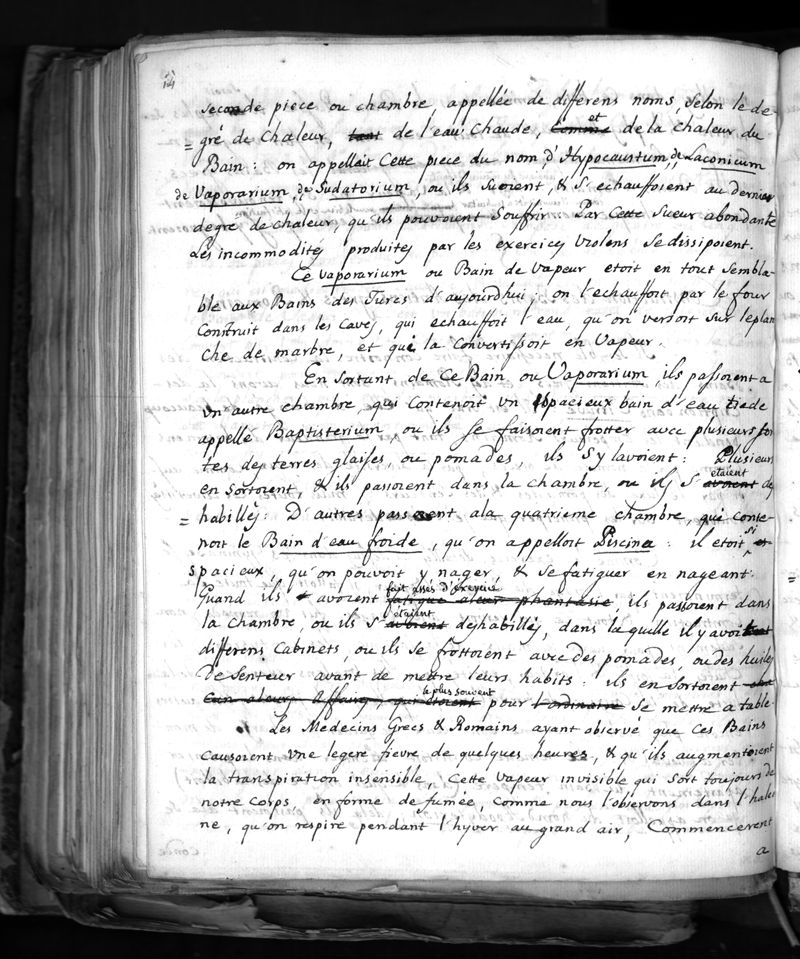 14
seconde piece ou chambre appellée de differens noms, selon le de-
=gré de Chaleur, tant de l'eau Chaude, Comme et de la chaleur du
Bain: on appelloit Cette piece du nom d'Hypocaustum, de Laconicum
de Vaporarium, de Sudatorium, ou ils suoient, & s'echauffoient au dernier
degré de chaleur, qu'ils pouvoient souffrir. Par Cette sueur abondante
Les incommodités produites par les exercices violens se dissipoient.
Ce vaporarium ou Bain de vapeur etoit en tout sembla-
ble aux Bains des Turcs d'aujourdhui; on l'echauffoit par le four
Construit dans les Caves, qui echauffoit l'eau, qu'on versoit sur le plan
che de marbre, et qui la Convertissoit en Vapeur.
En sortant de Ce Bain ou Vaporarium, ils passoient a
un autre chambre, qui Contenoit un spacieux bain d'eau tiede
appellé Baptisterium, ou ils se faisoient frotter avec plusieurs sor
tes de terres glaises, ou pomades, ils s'y lavoient: Plusieurs
en sortoient, & ils passoient dans la chambre, ou ils s'avoient etaient des
=habillés: D'autres passoient a la quatrieme chambre, qui Conte-
noit le Bain d'eau froide, qu'on appelloit Piscina: il etoit si
spacieux, qu'on pouvoit y nager, & se fatiguer en nageant.
Quand ils avoient fait assés d'exercice fatigue aleur phantasie, ils passoient dans
la chambre, ou ils s'avoient etaient deshabillés, dans laquelle il y avoit
differens Cabinets, ou ils se frottoient avec des pomades, ou des huiles
de senteur avant de mettre leurs habits: ils en sortoient cha
Cun a leurs affaires, qui etoient le plus souvent pour l'ordinaire se mettre a table.
Les Medecins Grecs & Romains ayant observé que Ces Bains
Causoient une legere fievre de quelques heures, & qu'ils augmentoient
la transpiration insensible, Cette vapeur invisible qui sort toujours de
notre Corps, en forme de fumée, Comme nous l'observons dans l'halei
ne, qu'on respire pendant l'hyver au grand air, Commencerent
a